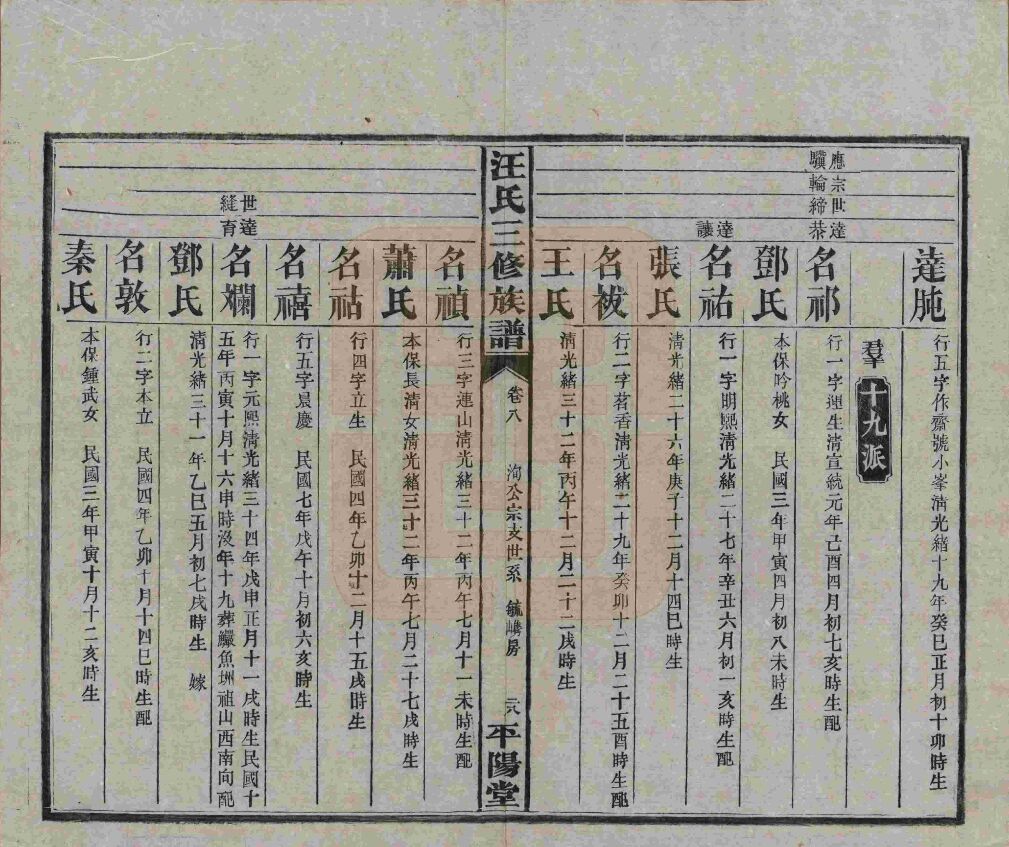 達肫
行五字作齋號小峯清光緒十九年癸巳正月初十卯時生
羣
十九派
應驥
宗輪
世締
達恭
名祁
行一字理生清宣統元年己酉四月初七亥時生配
鄧氏
本保吟桃女 民國三年甲寅四月初八未時生
達讓
名祐
行一字明熙清光緒二十七年辛丑六月初一亥時生配
張氏
清光緒二十六年庚子十二月十四巳時生
名祓
行二字茗香清光緒二十九年癸卯十二月二十五酉時生配
王氏
清光緒三十二年丙午十二月二十二戌時生
汪氏三修族譜
卷八
洵公宗支世系
毓嶙房
平陽堂
名禎
行三字連山清光緒三十二年丙午七月十一未時生配
蕭氏
本保長清女清光緒三十二年丙午七月二十七戌時生
名祜
行四字立生 民國四年乙卯十二月十五戌時生
名禧
行五字晨慶 民國七年戊午十月初六亥時生
世縫
達育
名斕
行一字元熙清光緒三十四年戊申正月十一戌時生民國十
五年丙寅十月十六申時沒年十九葬鱖魚洲祖山西南向配
鄧氏
清光緒三十一年乙巳五月初七戌時生 嫁
名敦
行二字本立 民國四年乙卯十月十四巳時生配
秦氏
本保鍾武女 民國三年甲寅十月十二亥時生